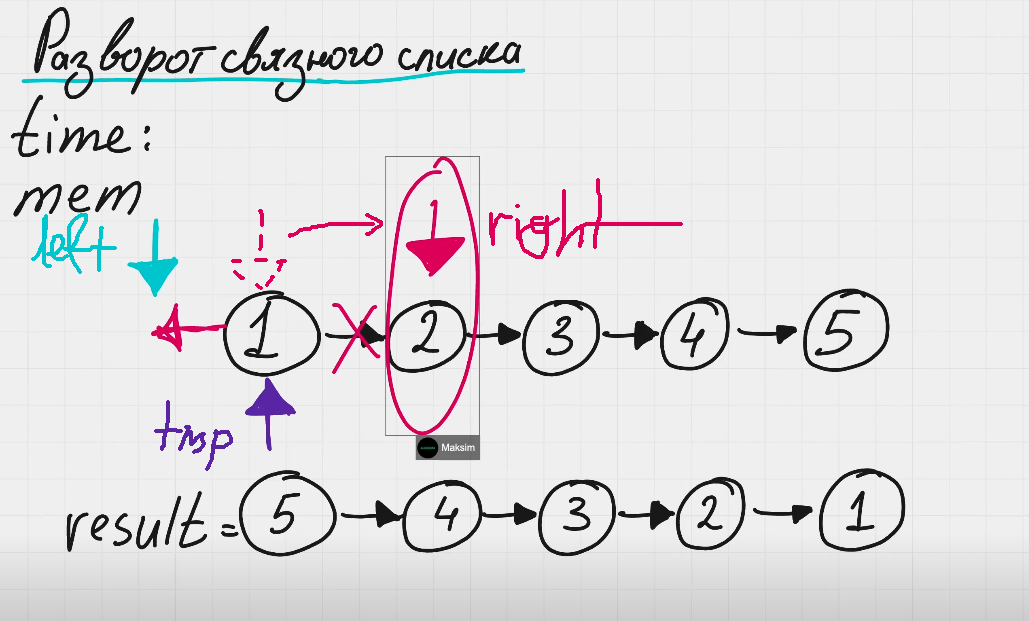 Разворот связного списка
time:
mem
left
right
1 2 3 4 5
tmp
Maksim
result = 5 4 3 2 1